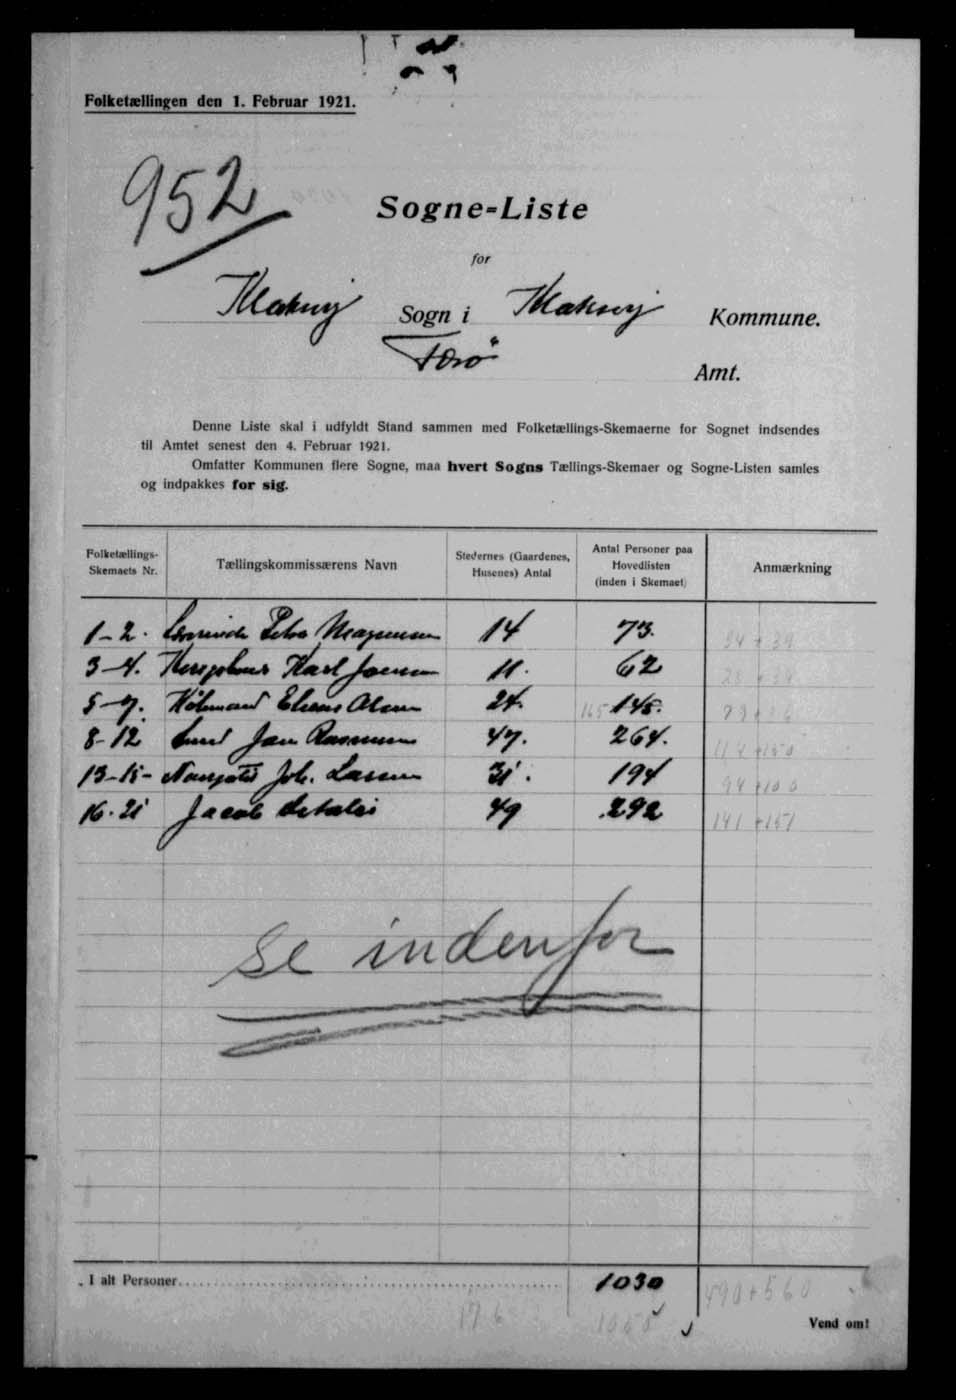 Folketællingen den 1. Februar 1921.
952
Sogne=Liste
for
Klaksvig Sogn i Klaksvig Kommune.
Færø Amt.
Denne Liste skal i udfyldt Stand sammen med Folketællings-Skemaerne for Sognet indsendes
til Amtet senest den 4. Februar 1921.
Omfatter Kommunen flere Sogne, maa hvert Sogns Tællings-Skemaer og Sogne-Listen samles
og indpakkes for sig.
Folketællings-Skemaets Nr. Tællingskommissærens Navn Stedernes (Gaardenes, Husenes) Antal Antal Personer paa Hovedlisten (inden i Skemaet) Anmærkning
1-2. Petra Magnussen 14 73. 34+39
3-4. Karl Joensen 11. 62
5-7. Købmand Olsen 24. 165 145.
8-12 Jan Rasmussen 47. 264. 114+150
13-15- Joh. Larsen 31. 194 94+100
16-21 Jacob 49 292 141+151
Se indenfor
I alt Personer 1030 490+560
176 1050
Vend om!